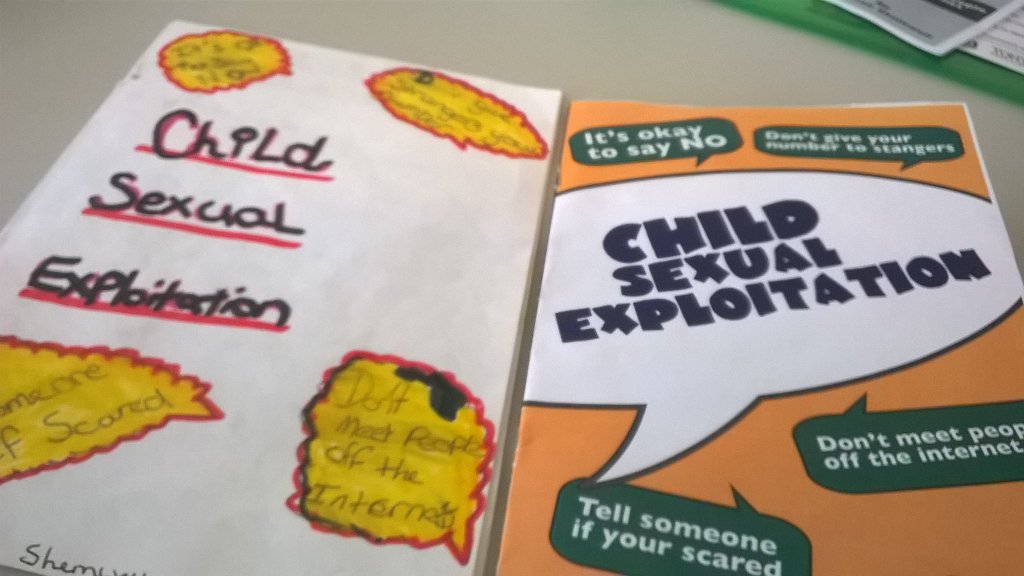 It's ok
NO
Child
Sexual
Exploitation
Someone
if Scared
Don't
Meet People
off the
Internet
It's okay
to say NO
Don't give your
number to stangers
CHILD
SEXUAL
EXPLOITATION
Don't meet peop
off the internet.
Tell someone
if your scared